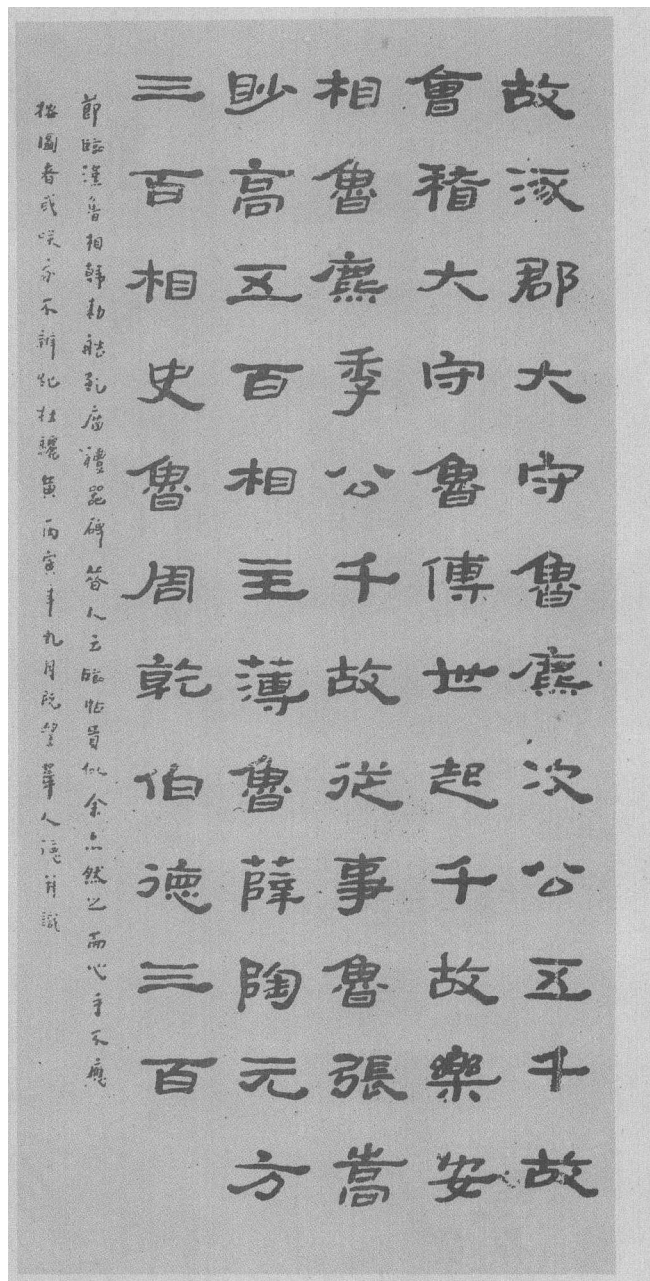 故涿郡大守魯麃次公五千故
會稽大守魯傅世起千故樂安
相魯麃季公千故從事魯張嵩
眇高五百相主薄魯薛陶元方
三百相史魯周乾伯德三百
節臨漢魯相韓勑艁孔廟禮器碑昔人云臨帖貴似余亦然之而心手不應
按圖者或咲余不辨牝牡驪黃丙寅年九月既望華人德并識